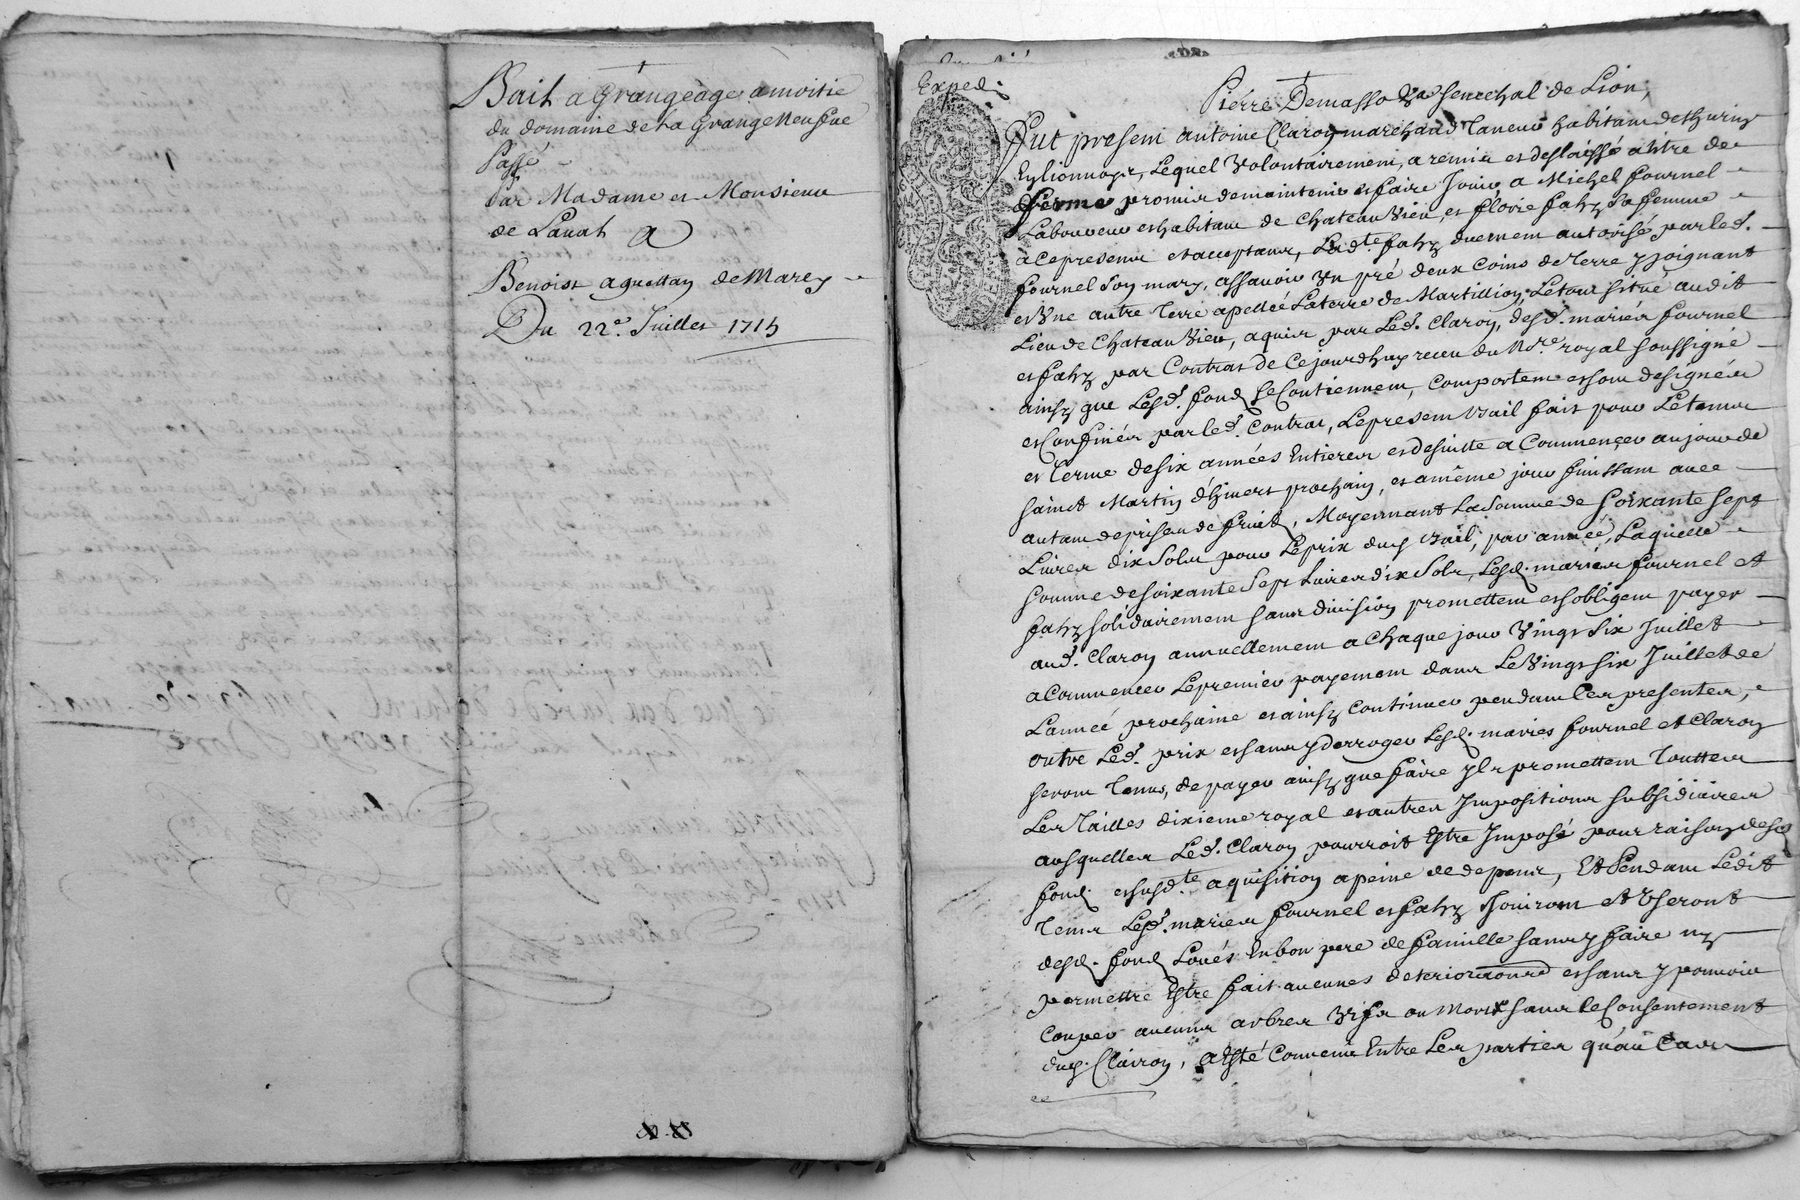 Bail a Grangeage a moitie
du domaine de la Grange Neufue
Passé
Par Madame et Monsieur
de Lauah A
Benoist aguettan de Marcy
Du 22e Juillet 1715
Exped.
Pierre Demasso Sr senechal de Lion,
Fut present antoine Claron marchand Taneur habitant de thurins
En lionnoys, Lequel Volontairement, a remis et deslaissé a titre de
ferme promis de maintenir et faire Jouir a Michel fournel
Laboureur et habitant de Chateau Vieu, et florie fahy sa femme
a ce presents et acceptans, Ladte. fahy duement autorisé par led.
fournel son mary, assauoir Un pré deux Coins de Terre y joignant
et Une autre Terre apellée La terre de Martillion, Le tout situé audit
Lieu de Chateau Vieu, aquis par Led. Claron, desd. mariés fournel
et fahy par Contrat de Cejourdhuy receu du Nore. royal soussigné
ainsy que Lesd. fond se Contiennent, Comportent et sont designés
et Confinés par led. Contrat, Le present bail fait pour Le tems
et Terme de six années Entieres et desuitte a Commencer au jour de
sainct Martin d'hiuers prochain, et a même jour finissant auec
autant de prises de fruits, Moyennant La Somme de Soixante sept
Liures dix Sols pour Le prix dud bail, par année, Laquelle
somme de soixante Sept Liures dix Sols, Lesd. mariés fournel et
fahy solidairement sans diuision promettent et s'obligent payer
aud. Claron annuellement a Chaque jour Vingt Six Juillet
a Commencer Le premier payement dans Le Vingt six Juillet de
L'année prochaine et ainsy Continuer pendant Les presentes,
outre Led. prix et sans y derroger Lesd. mariés fournel et Claron
seront Tenus, de payer ainsy que faire Ils promettent Touttes
Les Tailles dixieme royal et autres Impositions subsidiaires
ausquelles Led. Claron pourroit Estre Imposé pour raison desd
fond et susdte aquisition a peine de depens, Et Pendant Ledit
Tems Lesd. maries fournel et fahy Jouiront et Useront
desd. fond Loués En bon pere de famille sans y faire ny
permettre Estre fait aucunes deteriorations et sans y pouuoir
Couper aucuns arbres Vifs ou Morts sans le Consentement
dud. Clairon, a Esté Conuenu Entre Les parties qu'au Cas